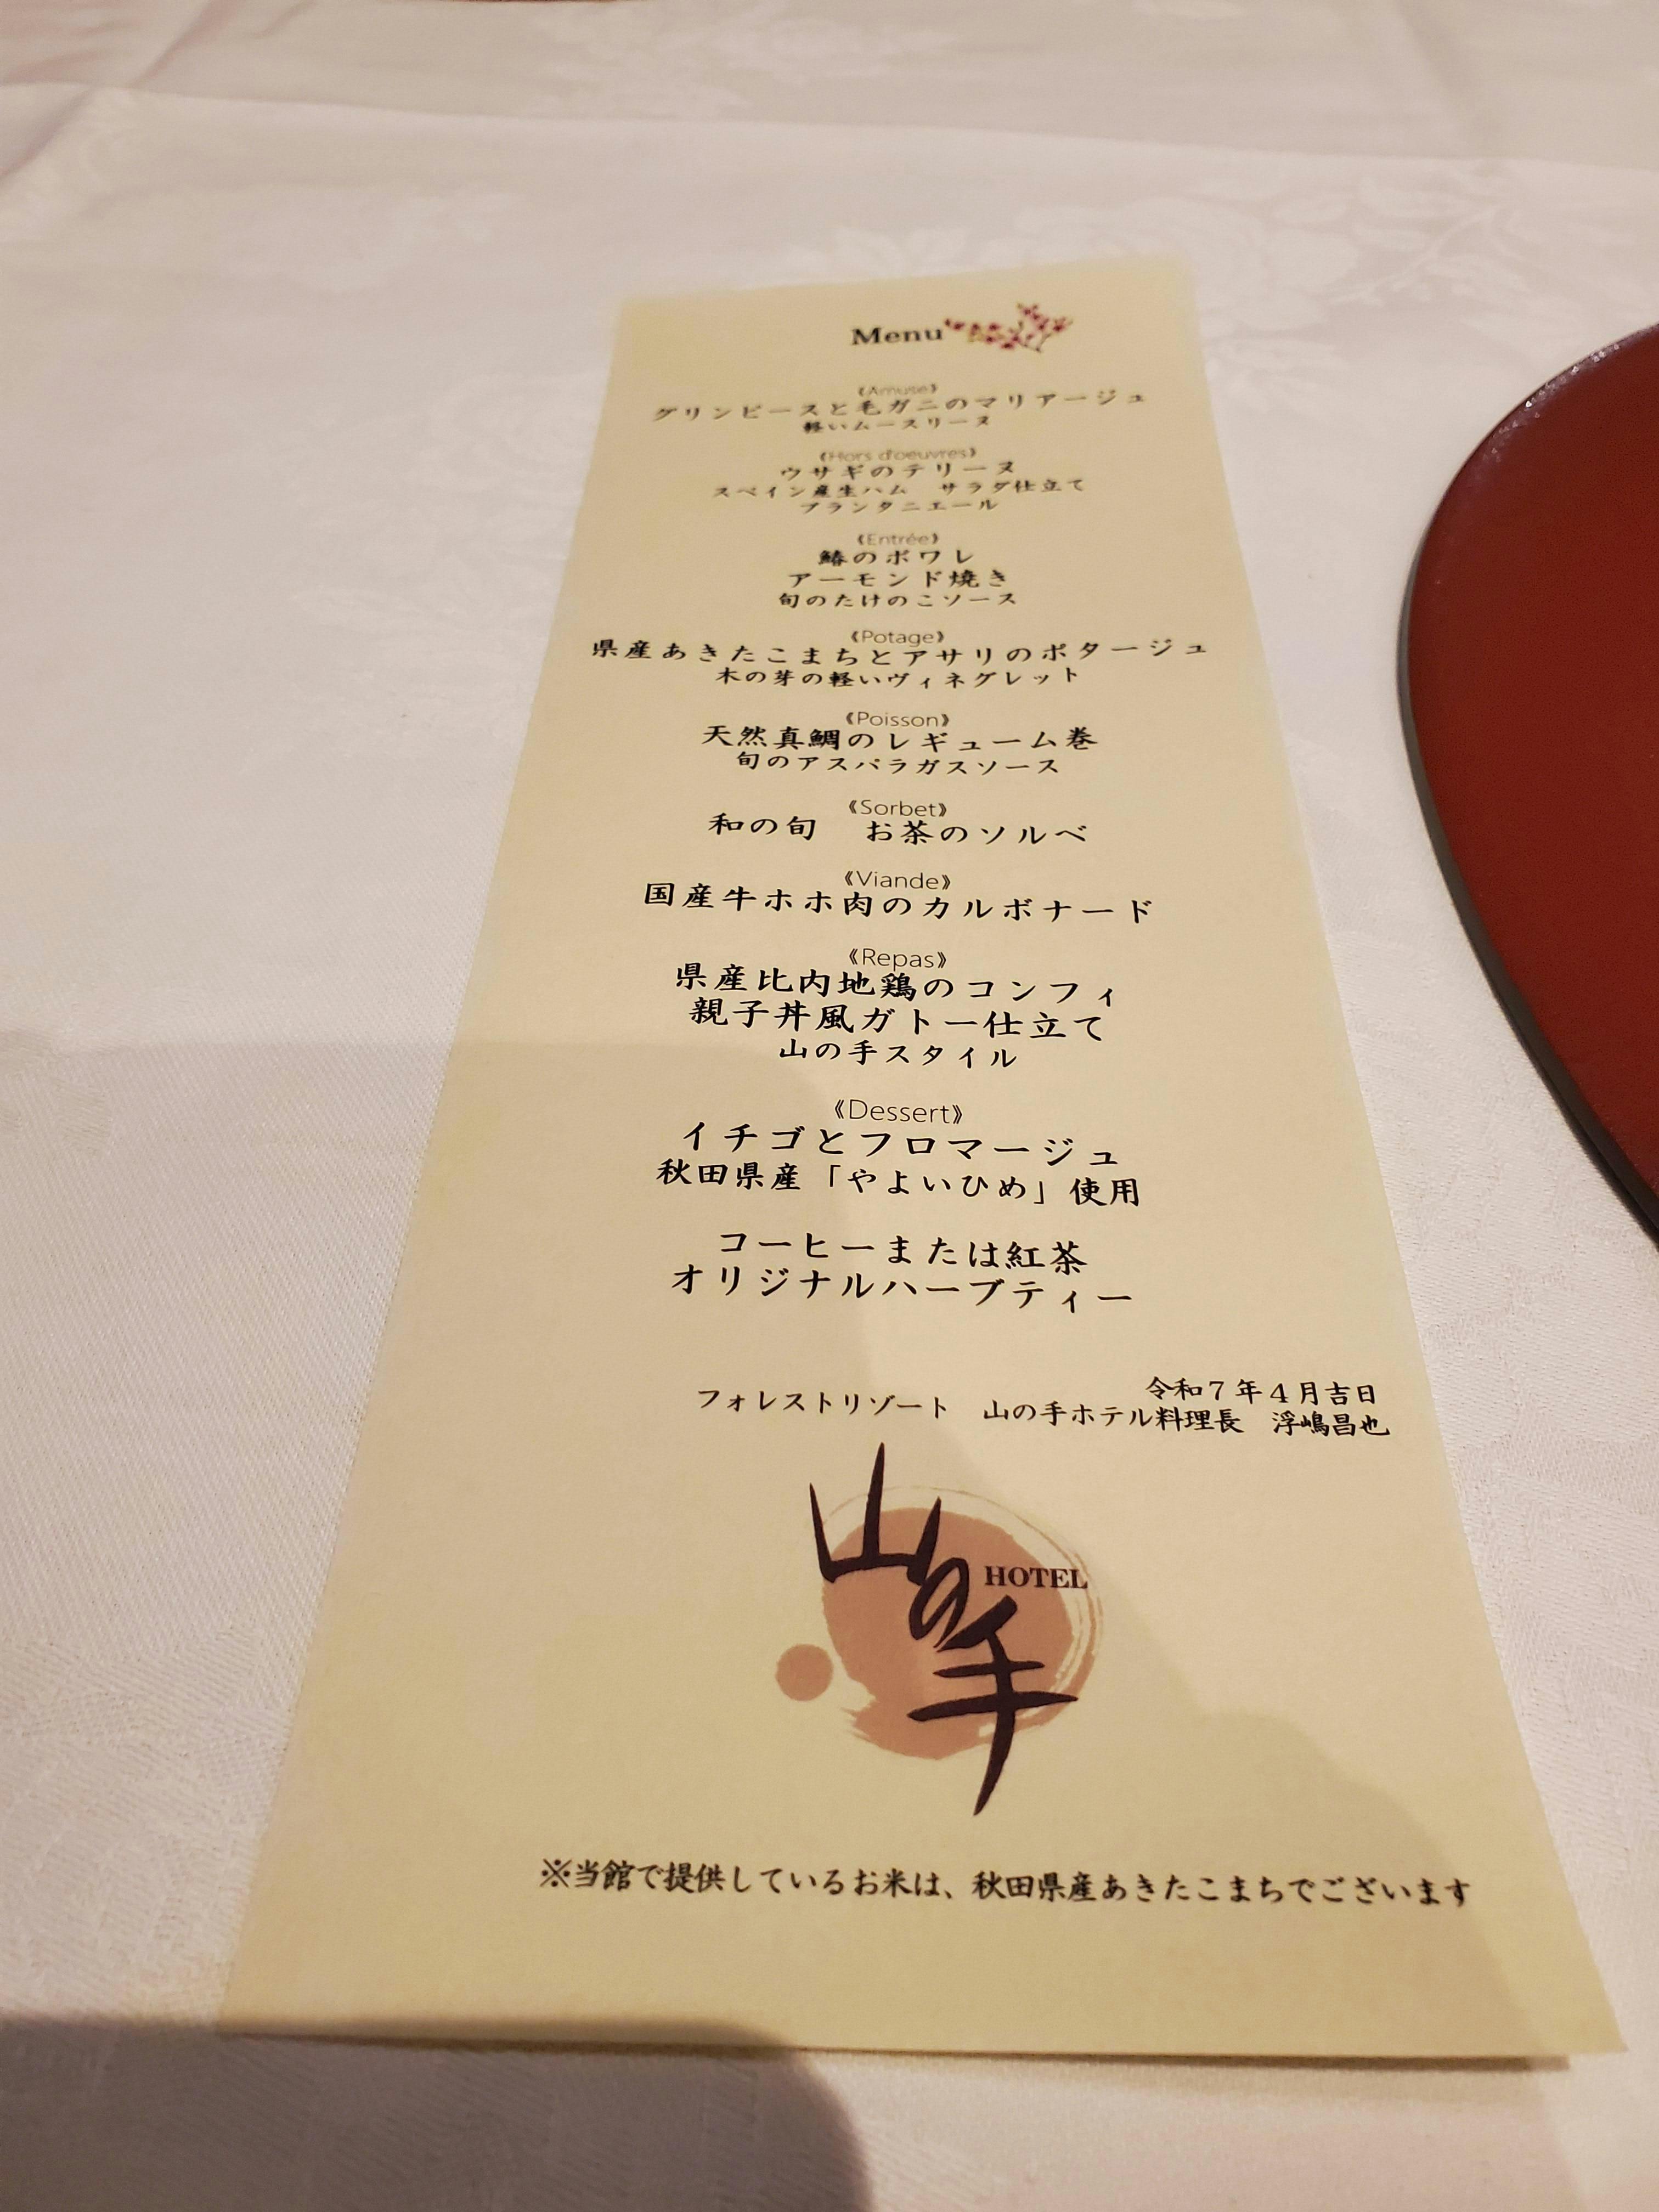 Menu
《Amuse》
グリンピースと毛ガニのマリアージュ
軽いムースリーヌ
《Hors d'oeuvres》
ウサギのテリーヌ
スペイン産生ハム　サラダ仕立て
プランタニエール
《Entrée》
鰆のポワレ
アーモンド焼き
旬のたけのこソース
《Potage》
県産あきたこまちとアサリのポタージュ
木の芽の軽いヴィネグレット
《Poisson》
天然真鯛のレギューム巻
旬のアスパラガスソース
《Sorbet》
和の旬　お茶のソルベ
《Viande》
国産牛ホホ肉のカルボナード
《Repas》
県産比内地鶏のコンフィ
親子丼風ガトー仕立て
山の手スタイル
《Dessert》
イチゴとフロマージュ
秋田県産「やよいひめ」使用
コーヒーまたは紅茶
オリジナルハーブティー
令和7年4月吉日
フォレストリゾート　山の手ホテル料理長　浮嶋昌也
山の手
HOTEL
※当館で提供しているお米は、秋田県産あきたこまちでございます